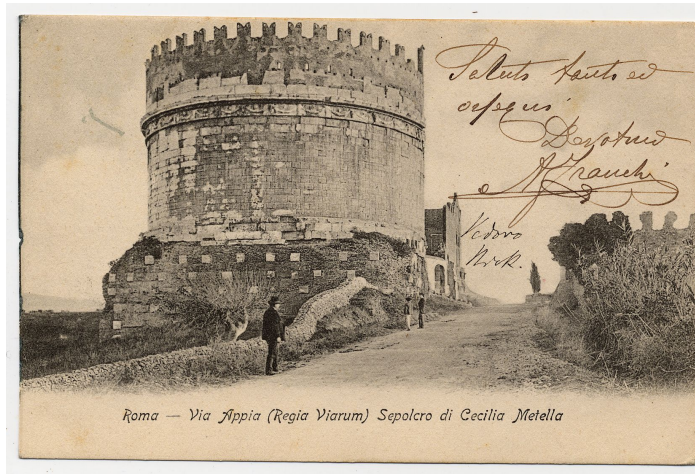 Saluti tanti ed
ossequi
Devotmo
A Franchi
Roma — Via Appia (Regia Viarum) Sepolcro di Cecilia Metella